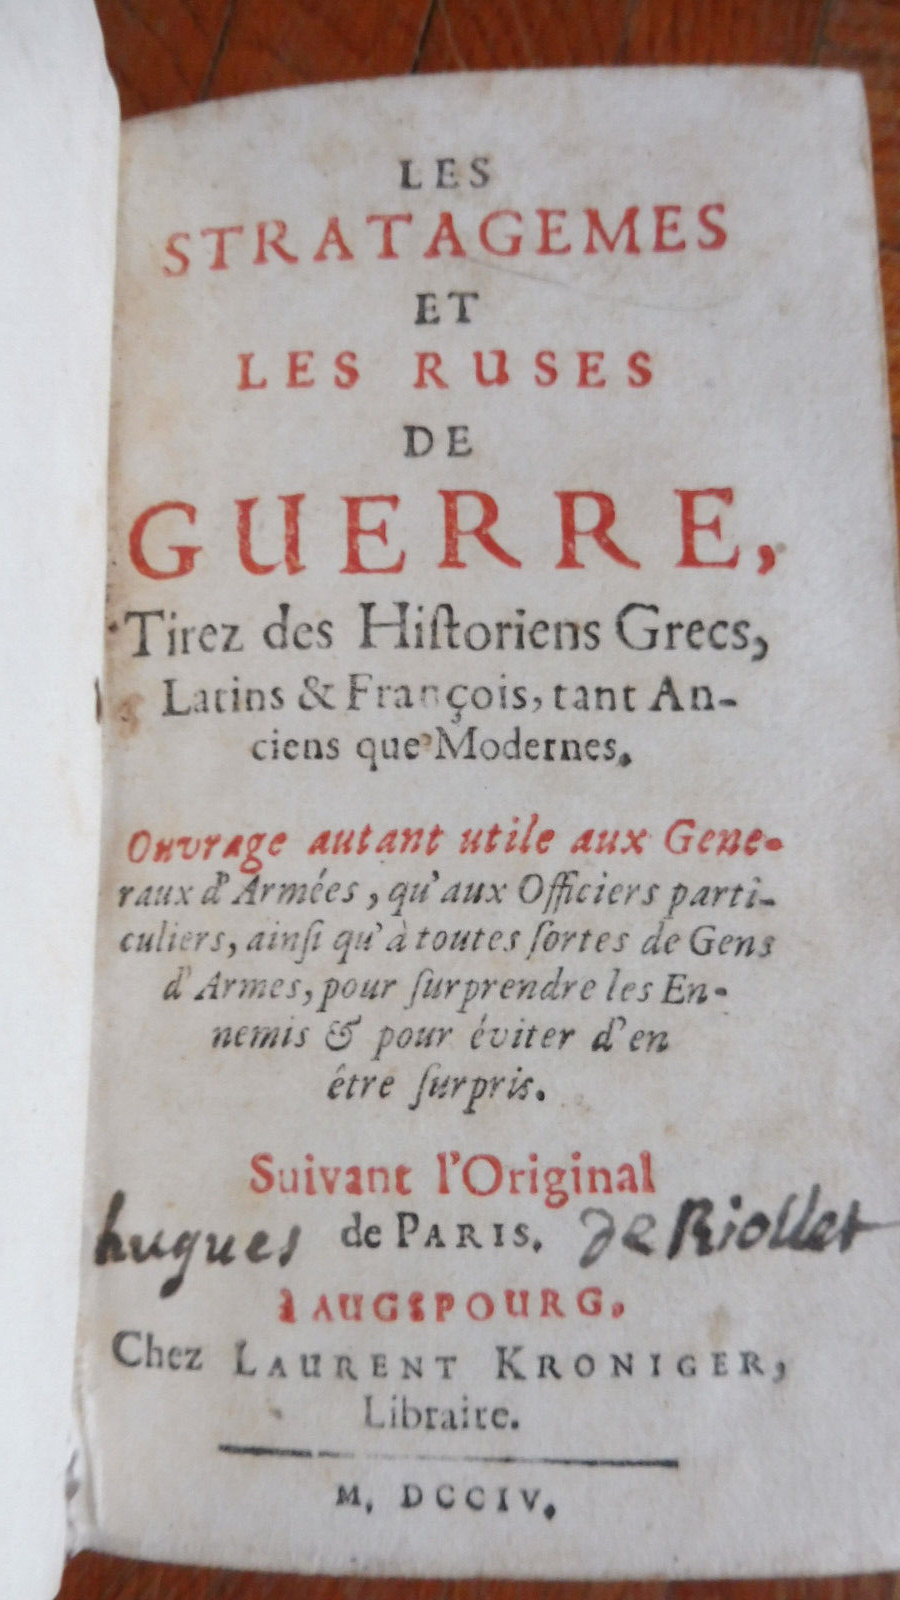 LES
STRATAGEMES
ET
LES RUSES
DE
GUERRE,
Tirez des Hiſtoriens Grecs,
Latins & François, tant An-
ciens que Modernes.
Ouvrage autant utile aux Gene-
raux d'Armées, qu'aux Officiers parti-
culiers, ainſi qu'à toutes ſortes de Gens
d'Armes, pour ſurprendre les En-
nemis & pour éviter d'en
être ſurpris.
Suivant l'Original
hugues de PARIS. de Riollet
à AUGSPOURG,
Chez LAURENT KRONIGER,
Libraire.
M. DCCIV.